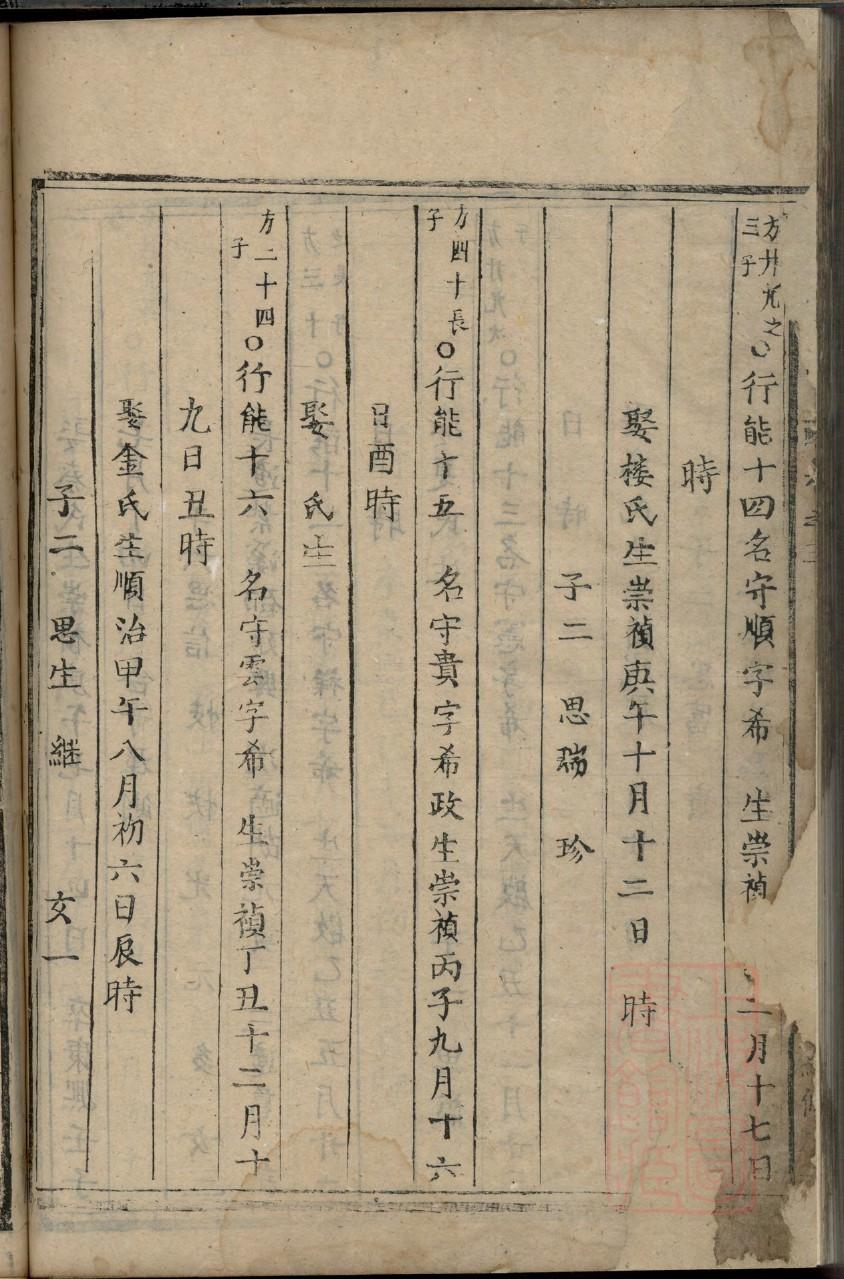 方廿九之三子○行能十四名守順字希 生崇禎 二月十七日
時
娶楼氏生崇禎庚午十月十二日 時
子二 思瑞 珍
方四十長子○行能十五 名守貴字希政生崇禎丙子九月十六
日酉時
娶 氏生
方二十四子○行能十六 名守雲字希 生崇禎丁丑十二月十
九日丑時
娶金氏生順治甲午八月初六日辰時
子二 思生 継 女一